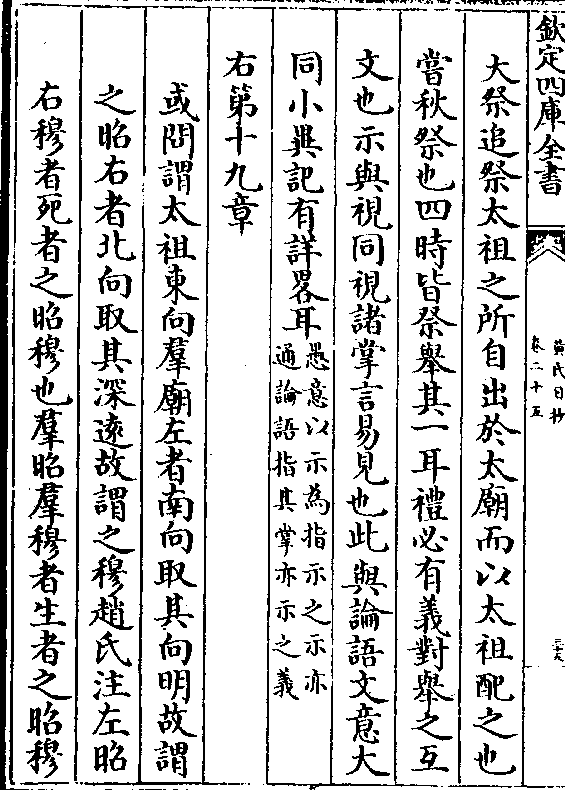 欽定四庫全書
黃氏日抄
卷二十五
三十九
大祭追祭太祖之所自出於太廟而以太祖配之也
嘗秋祭也四時皆祭舉其一耳禮必有義對舉之互
文也示與視同視諸掌言易見也此與論語文意大
同小異記有詳畧耳愚意以示為指示之示亦
通論語指其掌亦示之義
右第十九章
或問謂太祖東向羣廟左者南向取其向明故謂
之昭右者北向取其深遠故謂之穆趙氏注左昭
右穆者死者之昭穆也羣昭羣穆者生者之昭穆